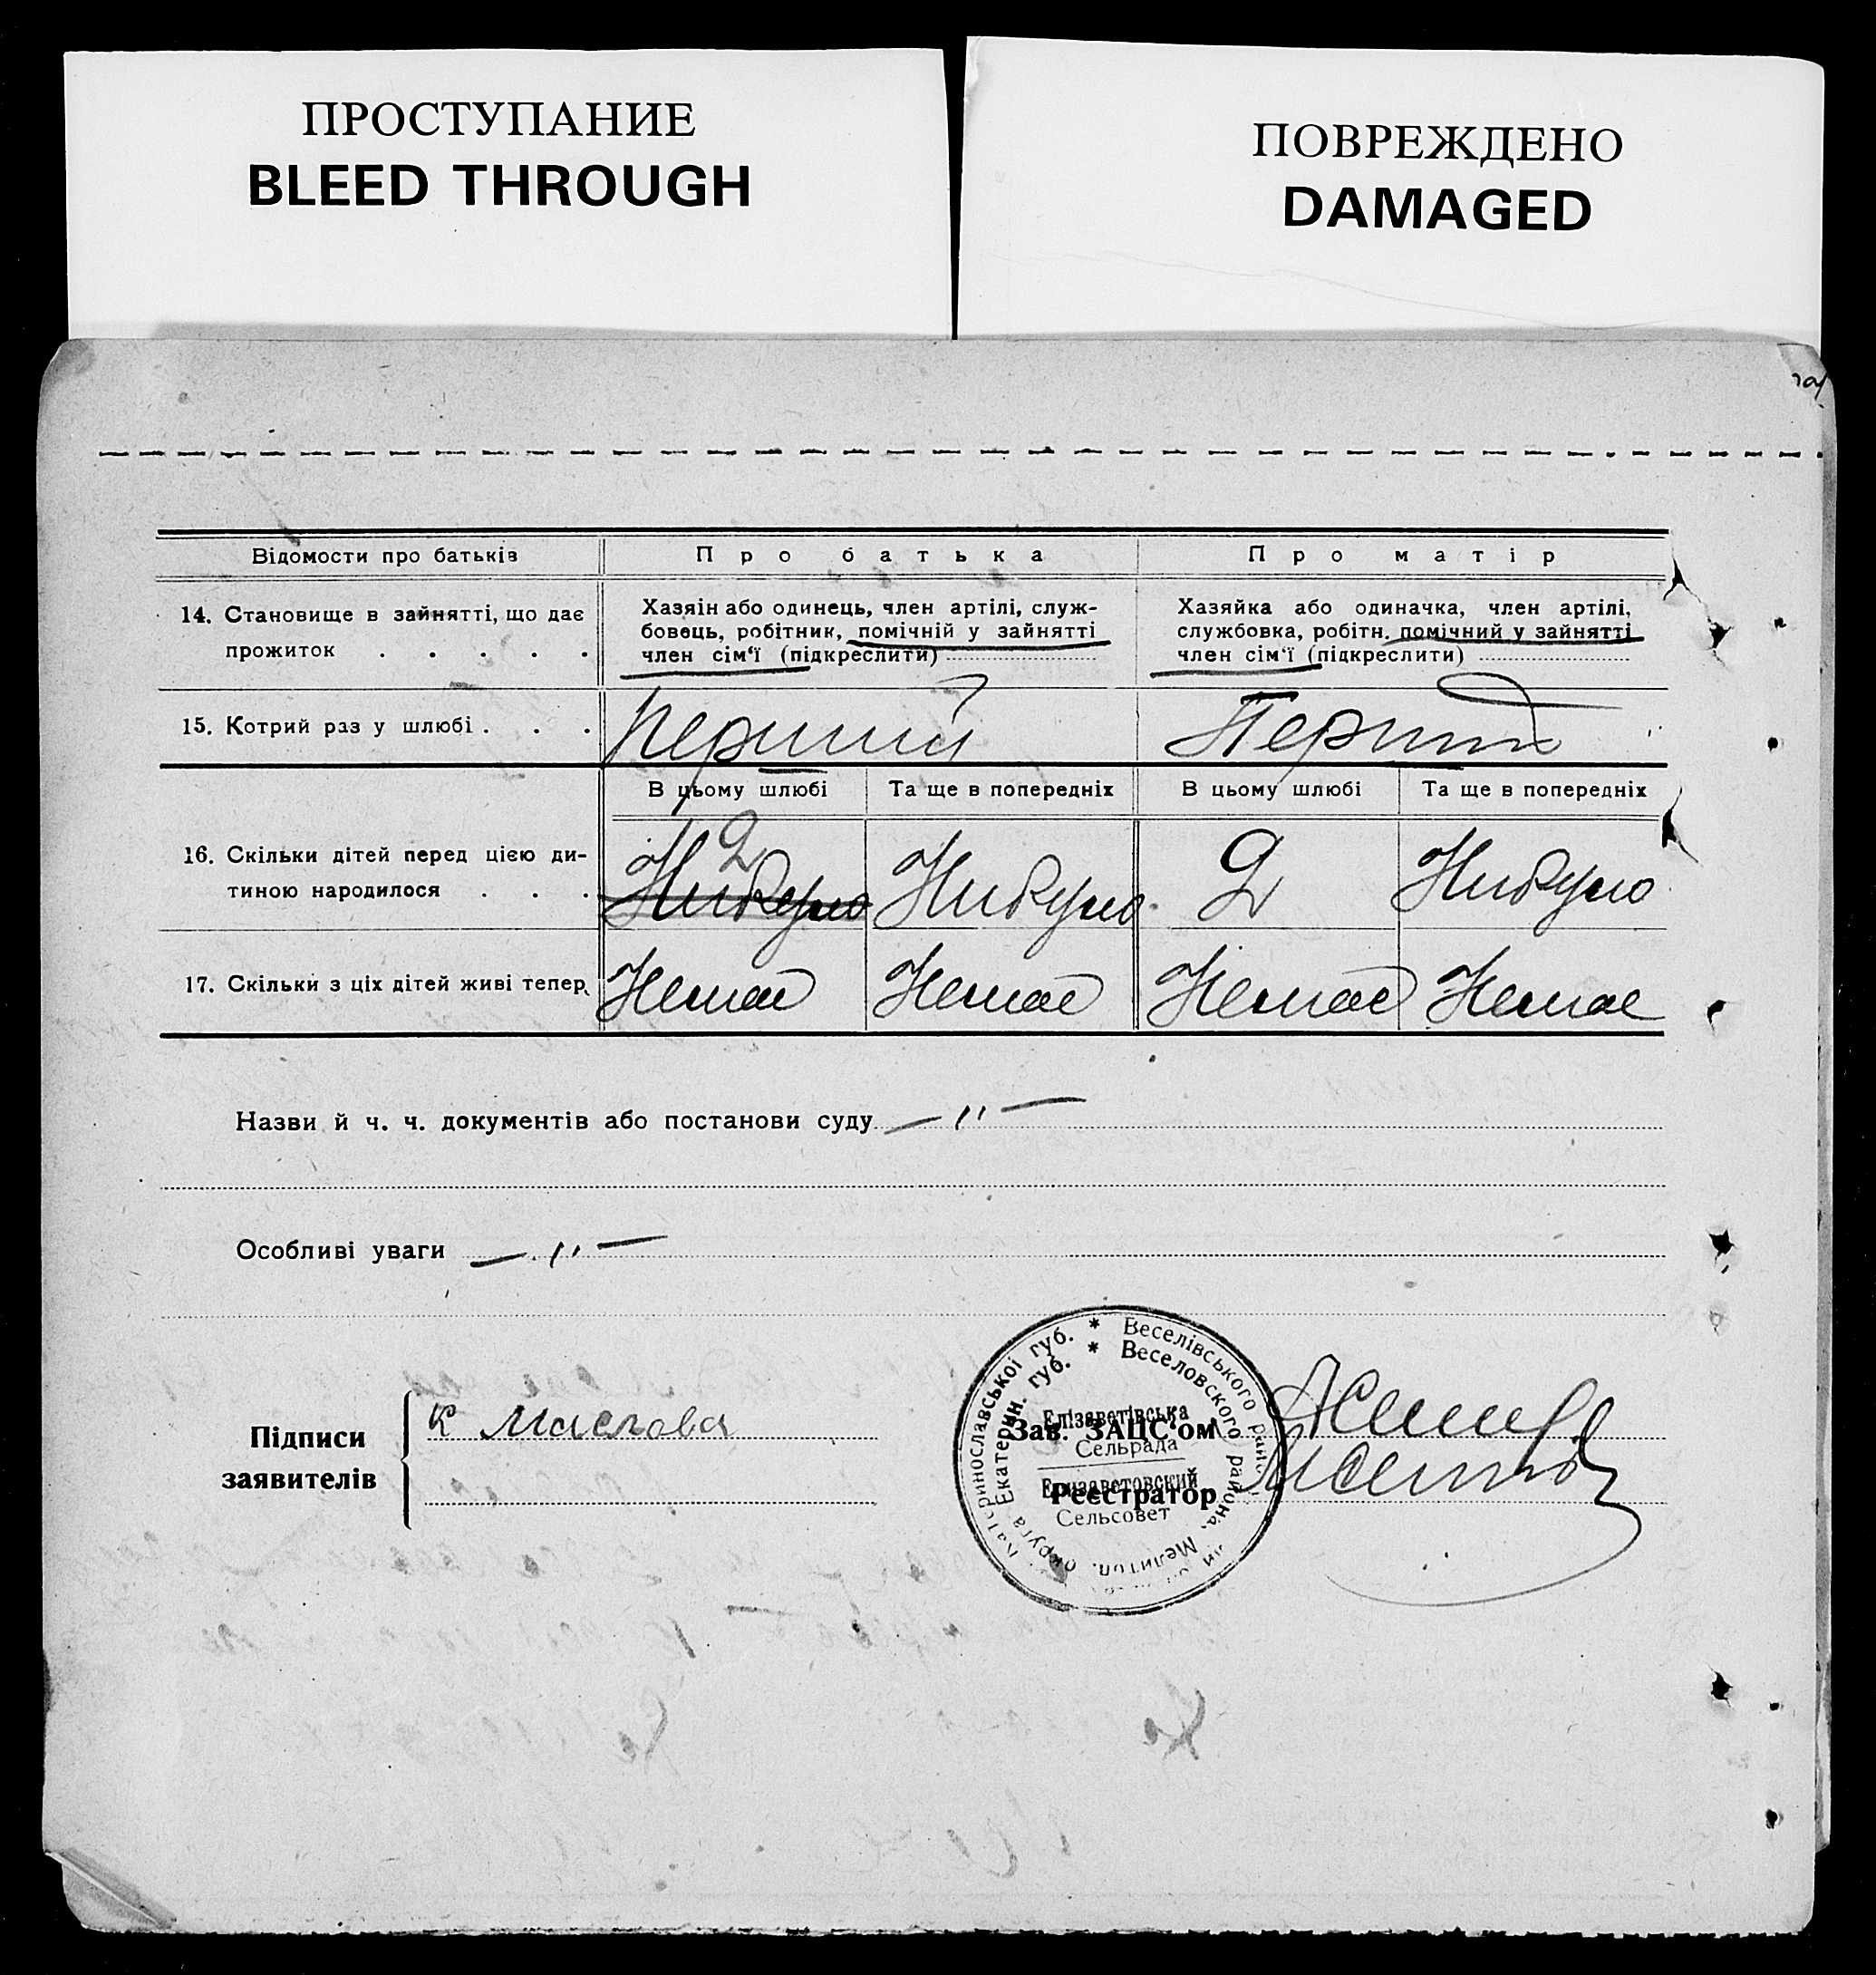 ПРОСТУПАНИЕ
BLEED THROUGH
ПОВРЕЖДЕНО
DAMAGED
Відомости про батьків
Про батька
Про матір
14. Становище в зайнятті, що дає
прожиток . . . . .
Хазяін або одинець, член артілі, служ-
бовець, робітник, помічній у зайнятті
член сім‘ї (підкреслити)
Хазяйка або одиначка, член артілі,
службовка, робітн. помічний у зайнятті
член сім‘ї (підкреслити)
15. Котрий раз у шлюбі . . .
Перший
Перший
В цьому шлюбі
Та ще в попередніх
В цьому шлюбі
Та ще в попередніх
16. Скільки дітей перед цією ди-
тиною народилося . . .
2
Небуло
Небуло
2
Небуло
17. Скільки з ціх дітей живі тепер.
Немає
Немає
Немає
Немає
Назви й ч. ч. документів або постанови суду — " —
Особливі уваги — " —
Підписи
заявителів
К Маслова
Зав. ЗАЦС‘ом
Реєстратор
Катеринославської губ. * Веселівського
Екатерин. губ. * Веселовского района, Мелитоп. округа
Єлізаветівська
Сельрада
Елизаветовский
Сельсовет